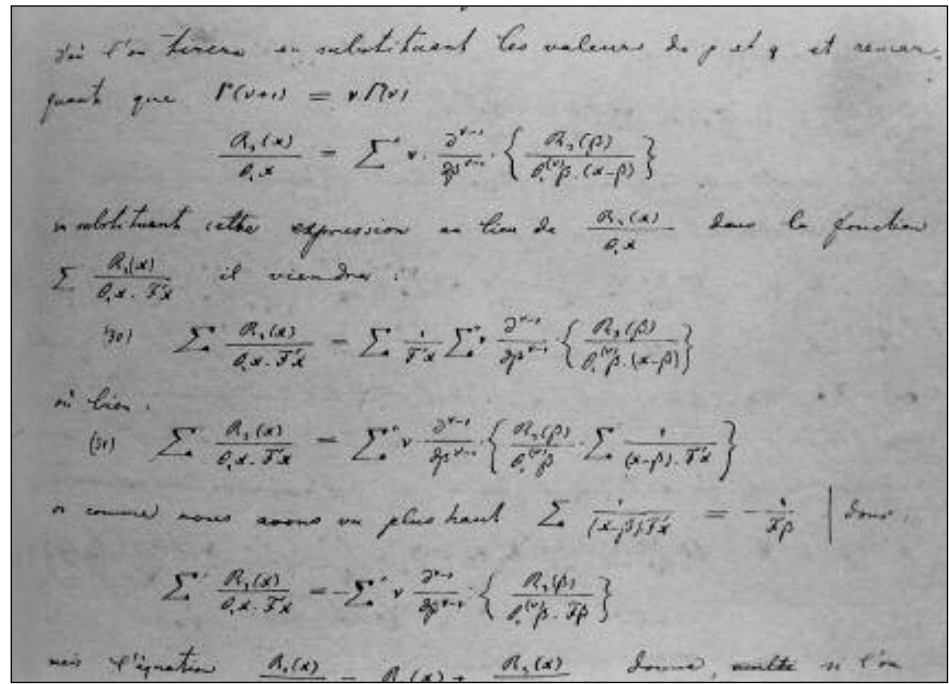 d'où l'on tirera en substituant les valeurs de p et q et remar-
quant que Γ(ν+1) = νΓ(ν)
R₃(x)/θ₁x = Σ' ν · ∂^(ν-1)/∂β^(ν-1) · { R₃(β)/(θ₁^(ν)β · (x-β)) }
en substituant cette expression au lieu de R₃(x)/θ₁x dans la fonction
Σ R₃(x)/(θ₁x · F'x) il viendra :
(30) Σ R₃(x)/(θ₁x · F'x) = Σ 1/F'x Σ' ν ∂^(ν-1)/∂β^(ν-1) · { R₃(β)/(θ₁^(ν)β · (x-β)) }
où bien :
(31) Σ R₃(x)/(θ₁x · F'x) = Σ' ν · ∂^(ν-1)/∂β^(ν-1) · { R₃(β)/θ₁^(ν)β · Σ 1/((x-β) · F'x) }
or comme nous avons vu plus haut Σ 1/((x-β)F'x) = -1/Fβ | donc :
Σ R₃(x)/(θ₁x · F'x) = -Σ' ν ∂^(ν-1)/∂β^(ν-1) · { R₃(β)/(θ₁^(ν)β · Fβ) }
mais l'équation R₁(x) = R(x) + R₃(x) donne, si l'on